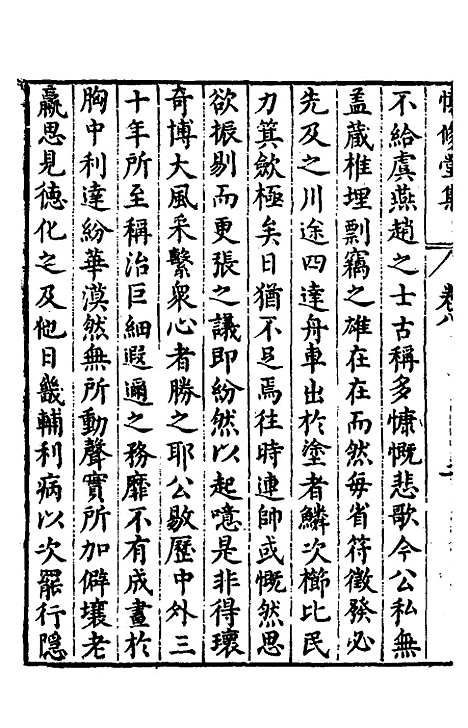 慎修堂集 卷八
不給虞燕趙之士古稱多慷慨悲歌今公私無
盖蔵椎埋剽竊之雄在在而然每省符徵發必
先及之川途四達舟車出於塗者鱗次櫛比民
力箕歛極矣日猶不足焉往時連帥或慨然思
欲振剔而更張之議即紛然以起噫是非得瓌
奇博大風采繫衆心者勝之耶公敭歷中外三
十年所至稱治巨細遐邇之務靡不有成畫於
胸中利達紛華漠然無所動聲實所加僻壤老
羸思見德化之及他日畿輔利病以次罷行隱